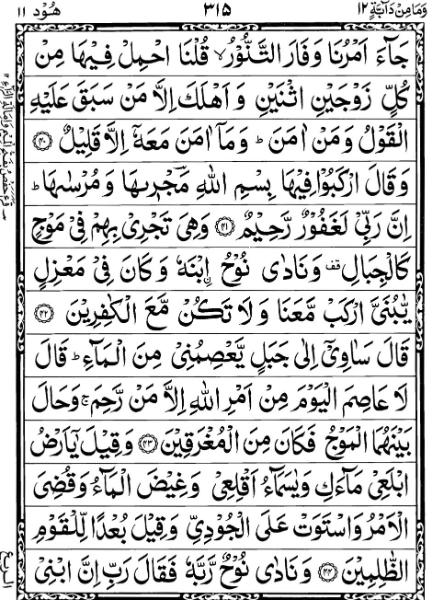 وَمَا مِنْ دَآبَّةٍ ١٢
٣١٥
هُوْد ١١
جَآءَ اَمْرُنَا وَفَارَ التَّنُّوْرُ ۙ قُلْنَا احْمِلْ فِيْهَا مِنْ
كُلٍّ زَوْجَيْنِ اثْنَيْنِ وَ اَهْلَكَ اِلَّا مَنْ سَبَقَ عَلَيْهِ
الْقَوْلُ وَمَنْ اٰمَنَ ؕ وَمَاۤ اٰمَنَ مَعَهٗۤ اِلَّا قَلِيْلٌ ﴿۴۰﴾
وَقَالَ ارْكَبُوْا فِيْهَا بِسْمِ اللّٰهِ مَجْرٖىهَا وَ مُرْسٰىهَا ؕ
اِنَّ رَبِّيْ لَغَفُوْرٌ رَّحِيْمٌ ﴿۴۱﴾ وَهِيَ تَجْرِيْ بِهِمْ فِيْ مَوْجٍ
كَالْجِبَالِ قف وَ نَادٰى نُوْحُ ِۨابْنَهٗ وَ كَانَ فِيْ مَعْزِلٍ
يّٰبُنَيَّ ارْكَبْ مَّعَنَا وَلَا تَكُنْ مَّعَ الْكٰفِرِيْنَ ﴿۴۲﴾
قَالَ سَاٰوِيْۤ اِلٰى جَبَلٍ يَّعْصِمُنِيْ مِنَ الْمَآءِ ؕ قَالَ
لَا عَاصِمَ الْيَوْمَ مِنْ اَمْرِ اللّٰهِ اِلَّا مَنْ رَّحِمَ ۚ وَحَالَ
بَيْنَهُمَا الْمَوْجُ فَكَانَ مِنَ الْمُغْرَقِيْنَ ﴿۴۳﴾ وَقِيْلَ يٰۤاَرْضُ
ابْلَعِيْ مَآءَكِ وَ يٰسَمَآءُ اَقْلِعِيْ وَغِيْضَ الْمَآءُ وَ قُضِيَ
الْاَمْرُ وَ اسْتَوَتْ عَلَى الْجُوْدِيِّ وَ قِيْلَ بُعْدًا لِّلْقَوْمِ
الظّٰلِمِيْنَ ﴿۴۴﴾ وَ نَادٰى نُوْحٌ رَّبَّهٗ فَقَالَ رَبِّ اِنَّ ابْنِيْ
الربع